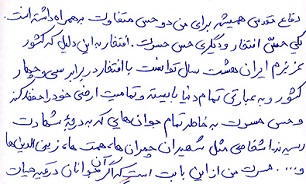 دفاع مقدس همیشه برای من دو حس متفاوت به همراه داشته است.
یکی حس افتخار و دیگری حس حسرت. افتخار به این دلیل که کشور
عزیزم ایران هشت سال توانست با افتخار در برابر سی و چهار
کشور و به عبارتی تمام دنیا بایستد و تمامیت ارضی خود را حفظ کند
و حس حسرت به خاطر تمام جوان‌هایی که به درجهٔ شهادت
رسیدند اشخاصی مثل شهیدان چمران‌ها، همت‌ها، زین الدین‌ها
و ... . حسرت من از این بابت است که اگر آن جوانان در قید حیات